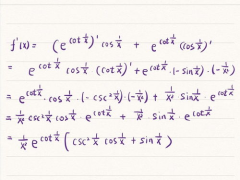 f'(x) = (e^{cot 1/x})' cos 1/x + e^{cot 1/x} (cos 1/x)'
= e^{cot 1/x} cos 1/x (cot 1/x)' + e^{cot 1/x} · (-sin 1/x) · (-1/x²)
= e^{cot 1/x} · cos 1/x · (-csc² 1/x) · (-1/x²) + 1/x² sin 1/x · e^{cot 1/x}
= 1/x² csc² 1/x cos 1/x · e^{cot 1/x} + 1/x² · sin 1/x · e^{cot 1/x}
= 1/x² e^{cot 1/x} (csc² 1/x cos 1/x + sin 1/x)